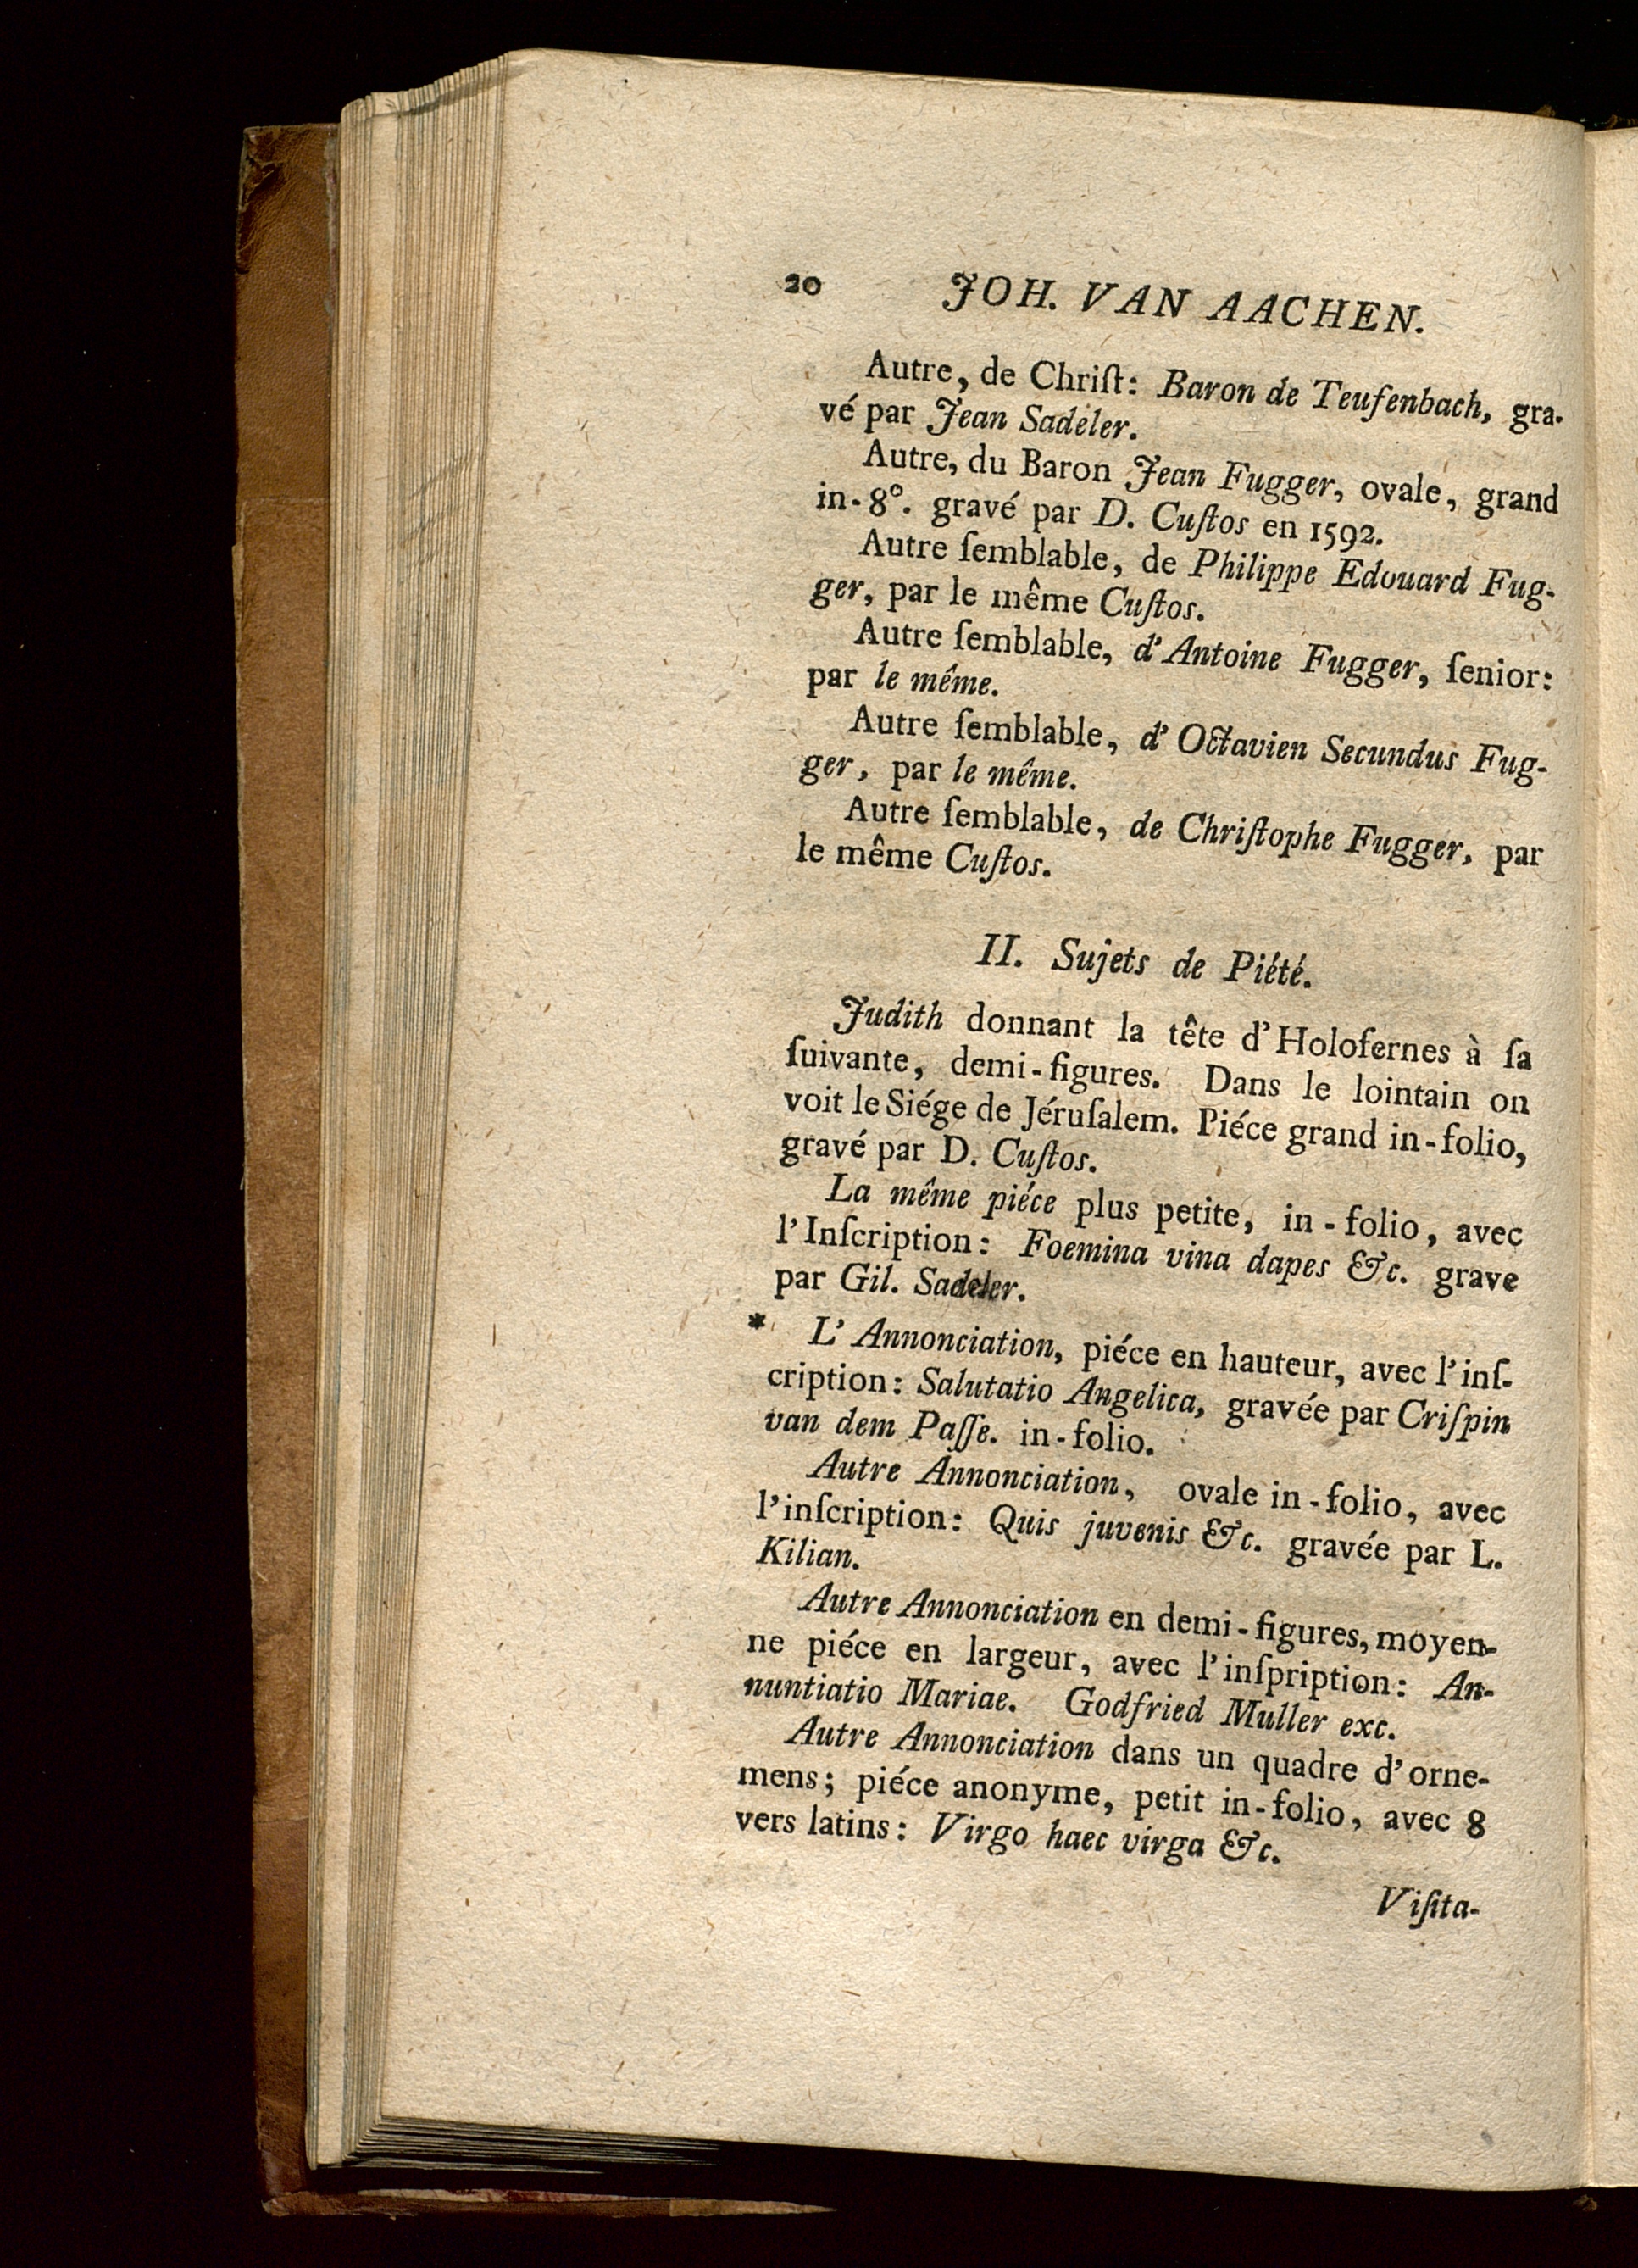 20 JOH. VAN AACHEN.
Autre, de Chriſt: Baron de Teufenbach, gra-
vé par Jean Sadeler.
Autre, du Baron Jean Fugger, ovale, grand
in-8°. gravé par D. Cuſtos en 1592.
Autre ſemblable, de Philippe Edouard Fug-
ger, par le même Cuſtos.
Autre ſemblable, d'Antoine Fugger, ſenior:
par le même.
Autre ſemblable, d'Octavien Secundus Fug-
ger, par le même.
Autre ſemblable, de Chriſtophe Fugger, par
le même Cuſtos.
II. Sujets de Piété.
Judith donnant la tête d'Holofernes à ſa
ſuivante, demi-figures. Dans le lointain on
voit le Siége de Jéruſalem. Piéce grand in-folio,
gravé par D. Cuſtos.
La même piéce plus petite, in-folio, avec
l'Inſcription: Foemina vina dapes &c. grave
par Gil. Sadeler.
* L'Annonciation, piéce en hauteur, avec l'inſ-
cription: Salutatio Angelica, gravée par Criſpin
van dem Paſſe. in-folio.
Autre Annonciation, ovale in-folio, avec
l'inſcription: Quis juvenis &c. gravée par L.
Kilian.
Autre Annonciation en demi-figures, moyen-
ne piéce en largeur, avec l'inſpription: An-
nuntiatio Mariae. Godfried Muller exc.
Autre Annonciation dans un quadre d'orne-
mens; piéce anonyme, petit in-folio, avec 8
vers latins: Virgo haec virga &c.
Viſita-